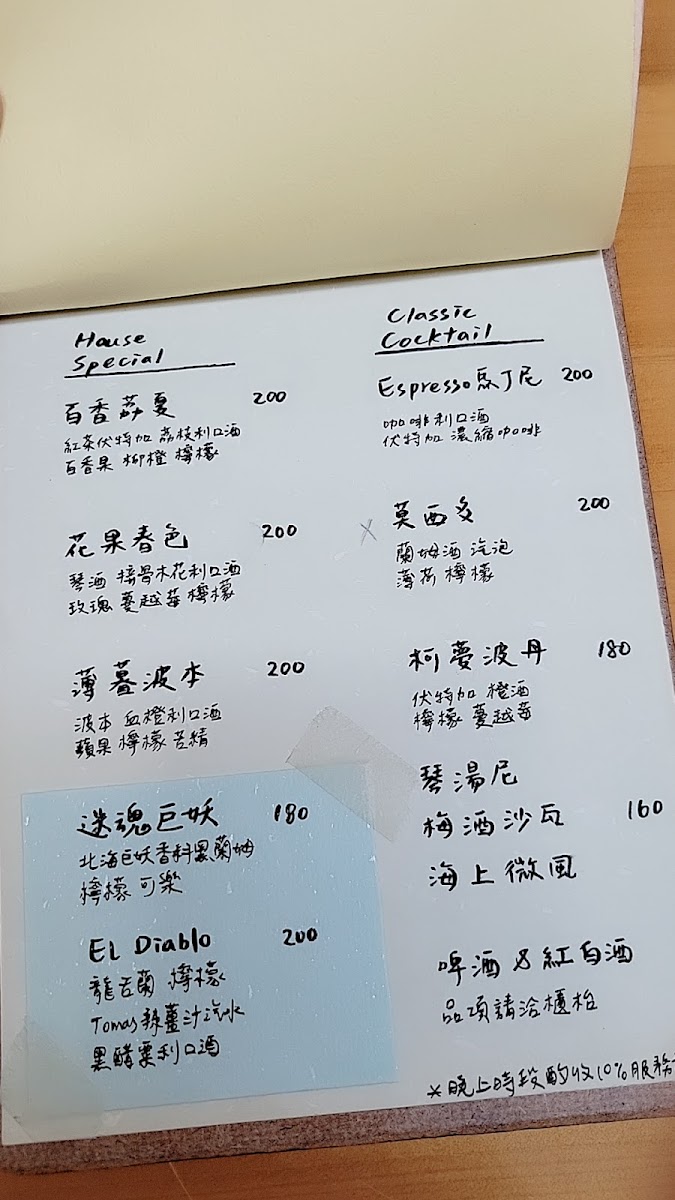 House
Special
百香荔夏 200
紅茶伏特加 荔枝利口酒
百香果 柳橙 檸檬
花果春色 200
琴酒 接骨木花利口酒
玫瑰 蔓越莓 檸檬
薄暮波本 200
波本 血橙利口酒
蘋果 檸檬 苦精
迷魂巨妖 180
北海巨妖香料黑蘭姆
檸檬 可樂
EL Diablo 200
龍舌蘭 檸檬
Tomas辣薑汁汽水
黑醋栗利口酒
Classic
Cocktail
Espresso馬丁尼 200
咖啡利口酒
伏特加 濃縮咖啡
x 莫西多 200
蘭姆酒 汽泡
薄荷 檸檬
柯夢波丹 180
伏特加 橙酒
檸檬 蔓越莓
琴湯尼
梅酒沙瓦 160
海上微風
啤酒&紅白酒
品項請洽櫃枱
*晚上時段酌收10%服務